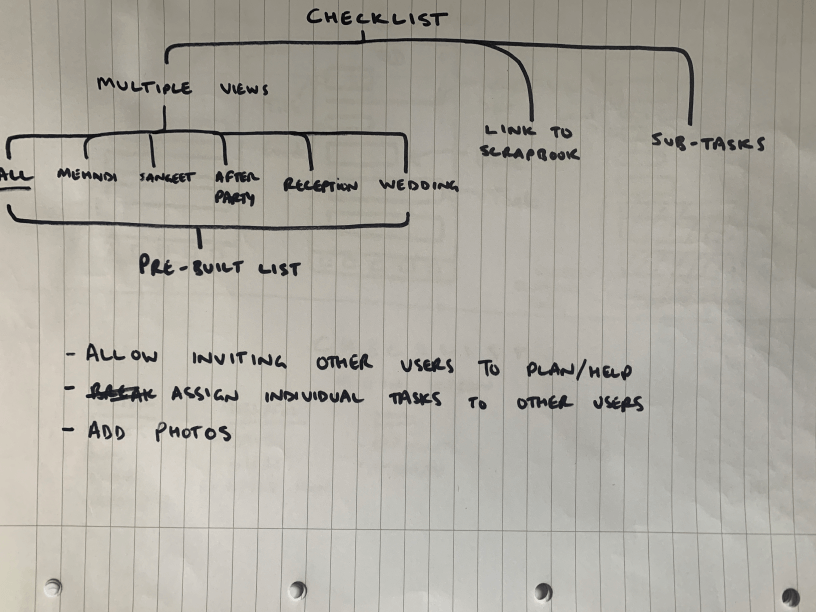 CHECKLIST
MULTIPLE VIEWS
LINK TO
SCRAPBOOK
SUB-TASKS
ALL
MEHNDI
SANGEET
AFTER
PARTY
RECEPTION
WEDDING
PRE-BUILT LIST
- ALLOW INVITING OTHER USERS TO PLAN/HELP
- ASSIGN INDIVIDUAL TASKS TO OTHER USERS
- ADD PHOTOS